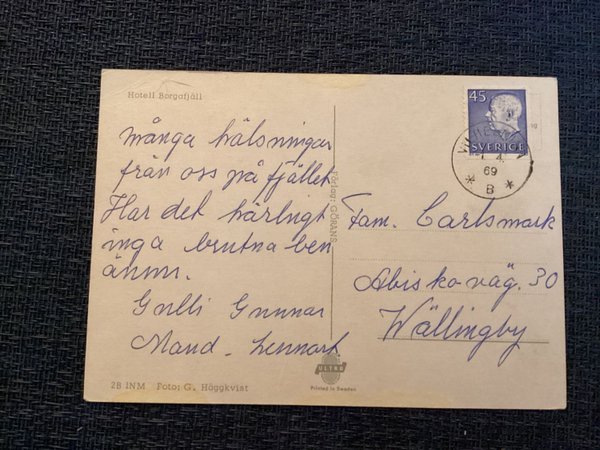 Hotell Borgafjäll
Många hälsningar
från oss på fjället
Har det härligt
inga brutna ben
ännu.
Gulli Gunnar
Maud - Lennart
2B INM Foto: G. Häggkvist
Förlag: GÖRANS
ULTRA
Printed in Sweden
45
SVERIGE
4
69
* B *
Fam. Carlsmark
Abiskoväg. 30
Wällingby